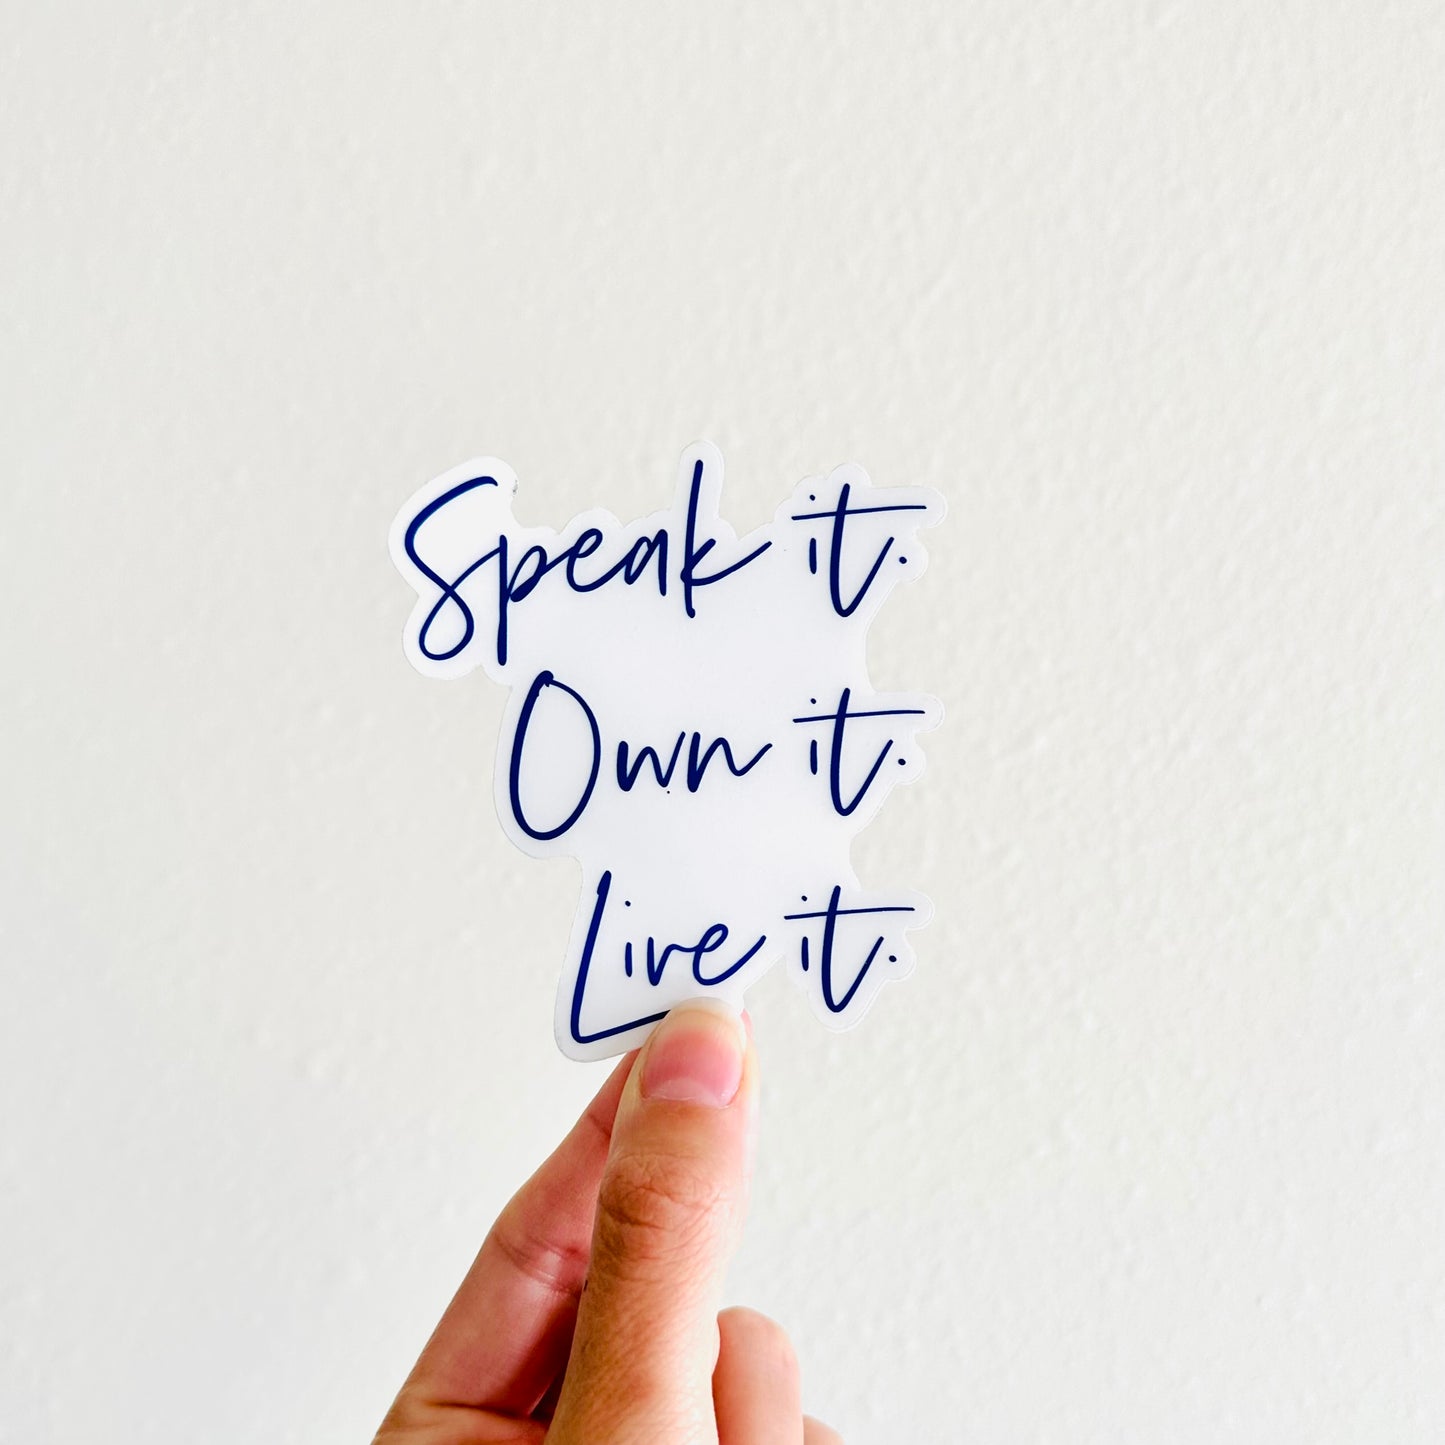 Speak it.
Own it.
Live it.